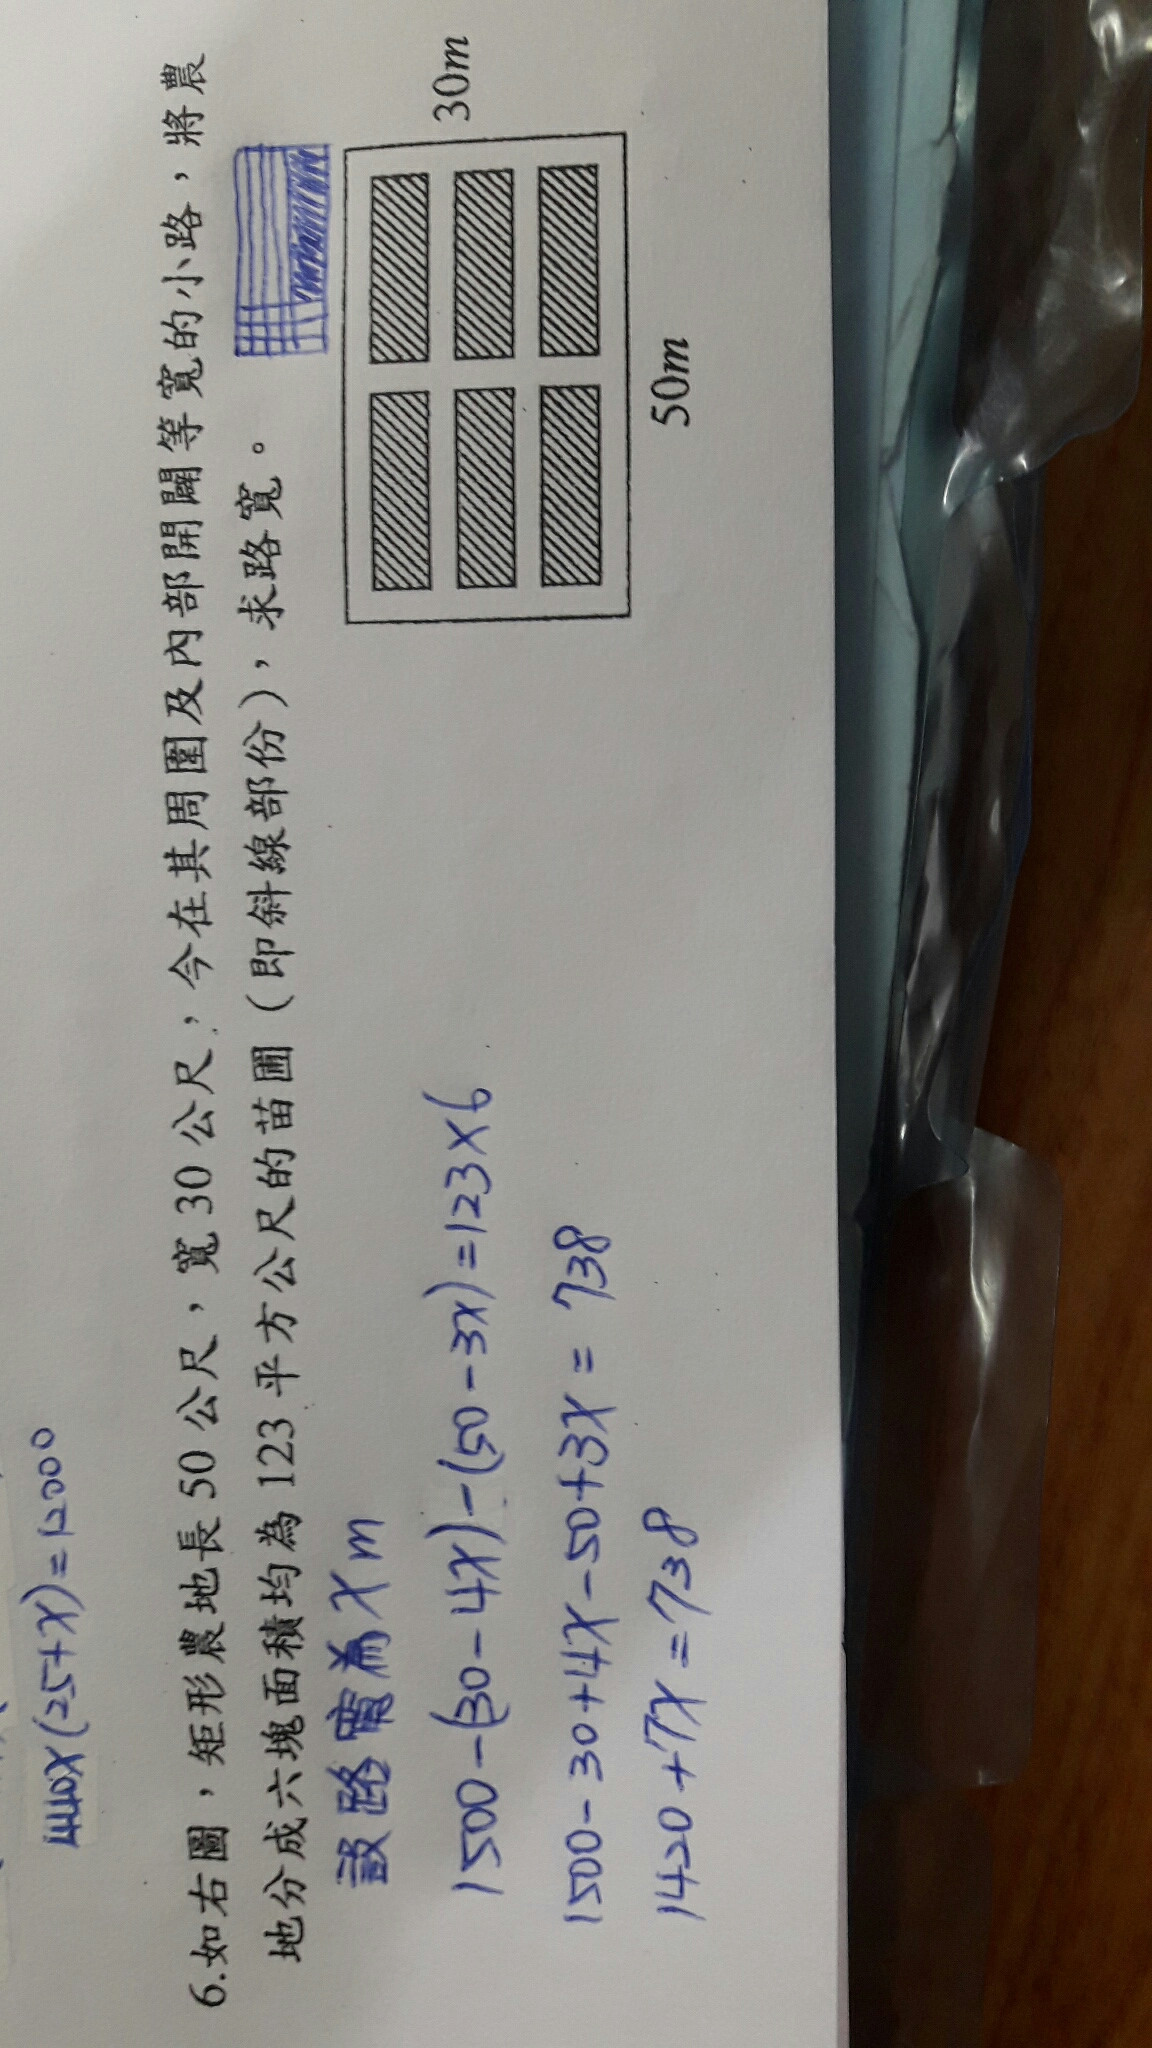 440x(25+x)=12000
6.如右圖，矩形農地長50公尺，寬30公尺，今在其周圍及內部開闢等寬的小路，將農
地分成六塊面積均為123平方公尺的苗圃（即斜線部份），求路寬。
30m
50m
設路寬為xm
1500-(30-4x)-(50-3x)=123×6
1500-30+4x-50+3x=738
1420+7x=738